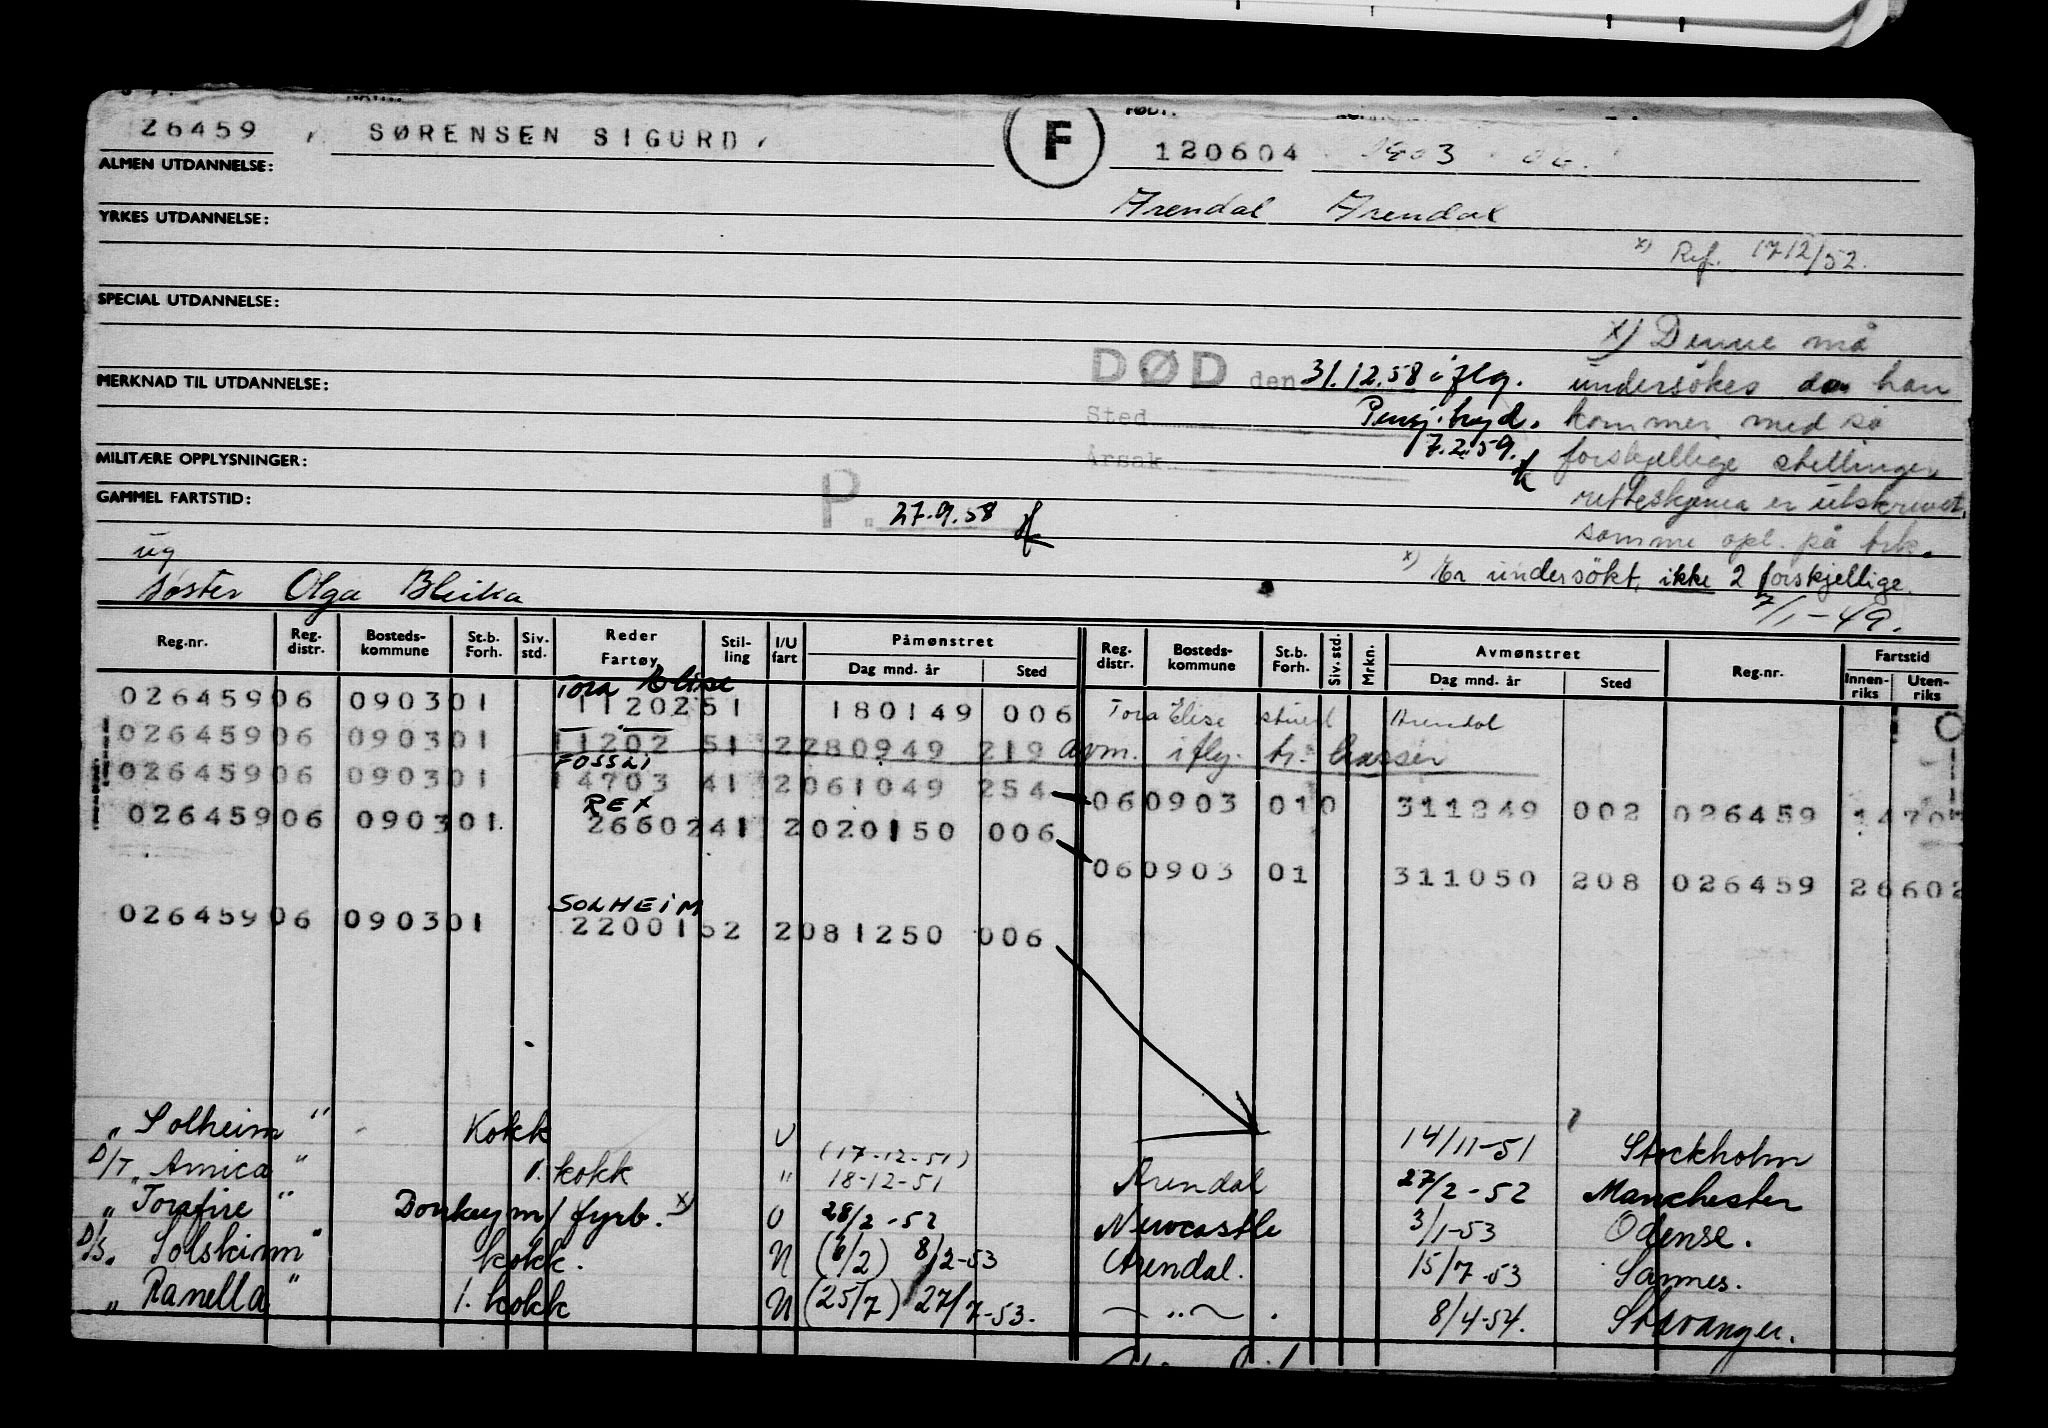 26459 SØRENSEN SIGURD F FØDT. 120604 03
ALMEN UTDANNELSE:
Arendal Arendal
YRKES UTDANNELSE:
x) Ref. 1712/52.
SPECIAL UTDANNELSE:
x) Denne må
DØD den 31.12.58 iflg. undersøkes da han
MERKNAD TIL UTDANNELSE:
Sted Pensj.tryd. kommer med så
7.2.59. forskjellige stillinger,
Årsak
MILITÆRE OPPLYSNINGER:
retteskjema er utskrevet,
GAMMEL FARTSTID:
P. 27.9.58
samme opl. på trk.
ug
x) Er undersökt, ikke 2 forskjellige.
søster Olga Bleika
7/1-49.
Reg.nr. Reg. distr. Bosteds- kommune St.b. Forh. Siv. std. Reder Fartøy Stil- ling I/U fart Påmønstret Dag mnd. år Sted Reg. distr. Bosteds- kommune St.b. Forh. Siv. std. Mrkn. Avmønstret Dag mnd. år Sted Reg.nr. Fartstid Innen- riks Uten- riks
Tora Elise
026459 06 0903 01 11202 51 180149 006 Tora Elise Arendal
026459 06 0903 01 11202 51 2 280949 219 avm. iflg.
FOSSLI
026459 06 0903 01 14703 41 2 061049 254 06 0903 01 0 311249 002 026459 1470
REX
026459 06 0903 01 26602 41 2 020150 006
06 0903 01 311050 208 026459 26602
SOLHEIM
026459 06 0903 01 22001 52 2 081250 006
"Solheim" Kokk U 14/11-51 Stockholm
D/T "Arnica" 1. kokk " (17-12-51) 18-12-51 Arendal 27/2-52 Manchester
"Torafire" Donkeym/fyrb. x) U 28/2-52 Newcastle 3/1-53 Odense.
D/S. Solskinn" kokk. N (6/2) 8/2-53 Arendal. 15/7-53 Sannes.
"Ranella" 1. kokk N (25/7) 27/7-53. — " — . 8/4-54. Stavanger.